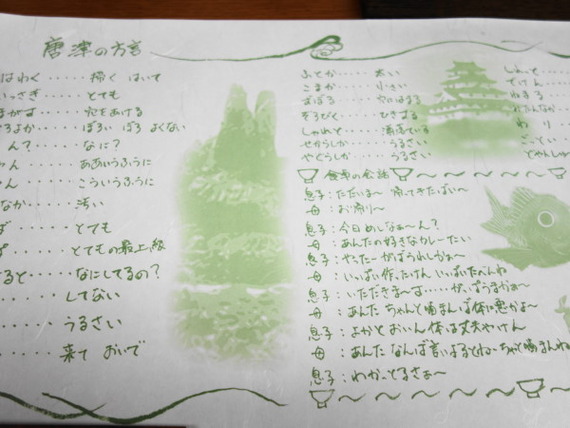 唐津の方言
はわく・・・・・掃く はいて
いっさき・・・・・とても
まがす・・・・・穴をあける
ろよか・・・・・ぼろい ぼろ よくない
ん?・・・・・なに?
ゃん・・・・・ああいうふうに
ん・・・・・こういうふうに
なか・・・・・汚い
・・・・・とても
・・・・・とてもの最上級
ると・・・・・なにしてるの?
・・・・・してない
・・・・・うるさい
・・・・・来て おいで
ふとか・・・・・太い
こまか・・・・・小さい
ずぼる・・・・・穴にはまる
そろびく・・・・・ひきずる
しゃれと・・・・・
せからしか・・・・・うるさい
やぐらしか・・・・・うるさい
食卓の会話
息子:ただいま〜 帰ってきたばい〜
母:お帰り〜
息子:今日めしなぁ〜ん?
母:あんたの好きなカレーたい
息子:やったーがばうれしかぁ〜
母:いっぱい作ったけん いっぱいたべんね
息子:いただきま〜す……がばうまかぁ〜
母:あんた ちゃんと噛まんば体に悪かよ〜
息子:よかとおいん体は丈夫やけん
母:あんた なんば言いよるとねーちゃんと噛まんね
息子:わかっとるさぁ〜